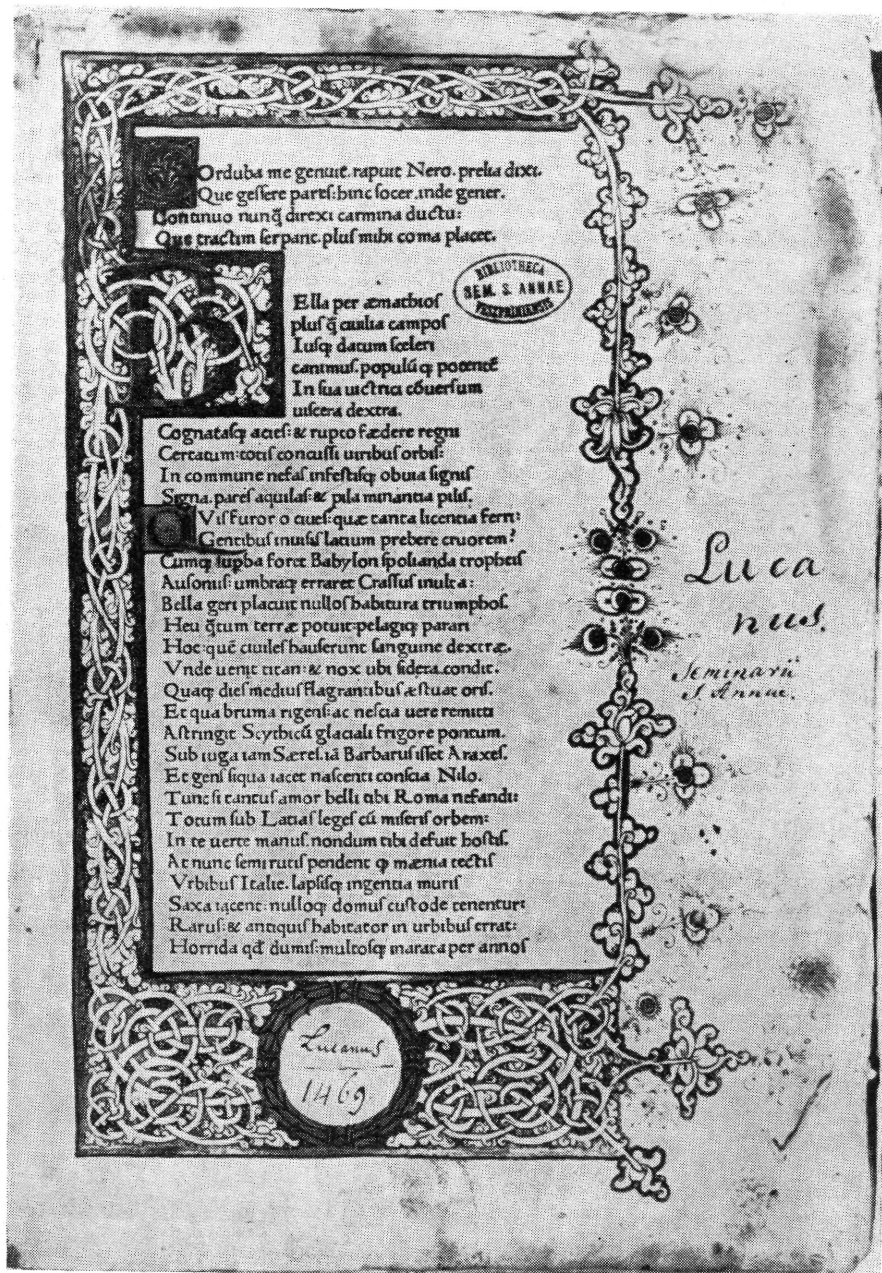 COrduba me genuit. rapuit Nero. prelia dixi.
Que gessere pares: hinc socer. inde gener.
Continuo nunq̃ direxi carmina ductu:
Que tractim serpant. plus mihi coma placet.
BElla per æmathios
plus q̃ ciuilia campos
Iusq; datum sceleri
canimus. populũ q; potentẽ
In sua uictrici cõuersum
uiscera dextra.
Cognatasq; acies: & rupto fædere regni
Certatum: totis concussi uiribus orbis:
In commune nefas infestisq; obuia signis
Signa. pares aquilas: & pila minantia pilis.
QVis furor o ciues: quæ tanta licentia ferri:
Gentibus inuisis latium prebere cruorem?
Cumq; supba foret Babylon spolianda tropheis
Ausoniis: umbraq; erraret Crassus inulta:
Bella geri placuit nullos habitura triumphos.
Heu q̃tum terræ potuit: pelagiq; parari
Hoc: quẽ ciuiles hauserunt sanguine dextræ.
Vnde uenit titan: & nox ubi sidera condit.
Quaq; dies medius flagrantibus æstuat oris.
Et qua bruma rigens: ac nescia uere remitti
Astringit Scythicũ glaciali frigore pontum.
Sub iuga iam Særes. iã Barbarus isset Araxes.
Et gens siqua iacet nascenti conscia Nilo.
Tunc si tantus amor belli tibi Roma nefandi:
Totum sub Latias leges cũ miseris orbem:
In te uerte manus. nondum tibi defuit hostis.
At nunc semirutis pendent q; mænia tectis
Vrbibus Italie. lapsisq; ingentia muris
Saxa iacent: nulloq; domus custode tenentur:
Rarus: & antiquis habitator in urbibus errat:
Horrida qd̃ dumis: multosq; inarata per annos
BIBLIOTHECA
SEM. S. ANNAE
VESZPRIMIENSIS
Luca
nus.
Seminarii
S. Annae.
Lucanus
1469.